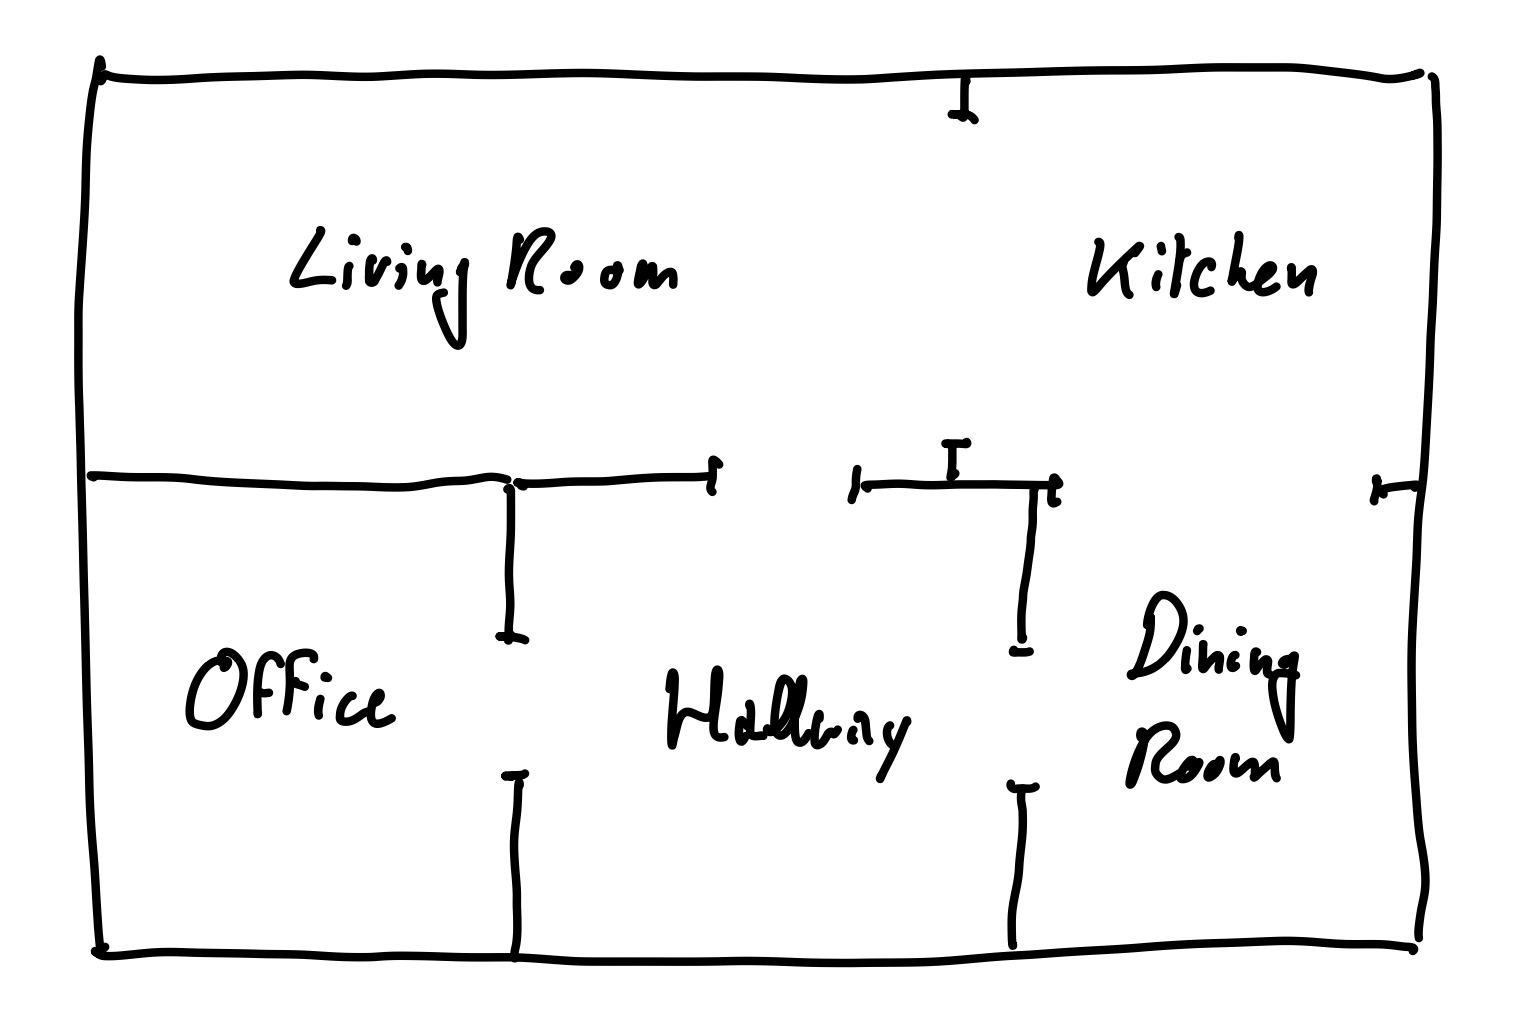 Living Room
Kitchen
Office
Hallway
Dining
Room